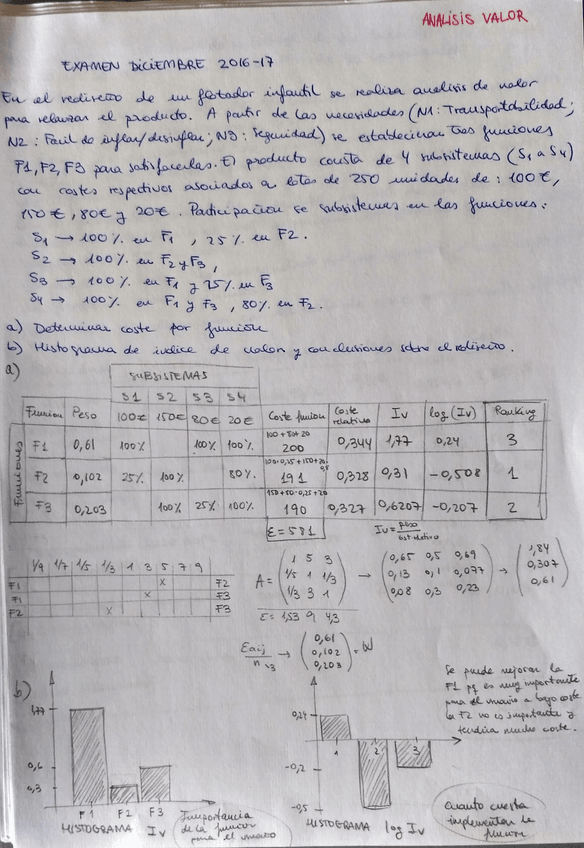 ANALISIS VALOR
EXAMEN DICIEMBRE 2016-17
En el rediseño de un flotador infantil se realiza analisis de valor
para relanzar el producto. A partir de las necesidades (N1: Transportabilidad;
N2: Facil de inflar/desinflar; N3: Seguridad) se establecieron tres funciones
F1, F2, F3 para satisfacerlas. El producto consta de 4 subsistemas (S1 a S4)
con costes respectivos asociados a lotes de 250 unidades de: 100€,
150€, 80€ y 20€. Participación de subsistemas en las funciones:
S1 → 100% en F1, 25% en F2.
S2 → 100% en F2 y F3,
S3 → 100% en F1 y 25% en F3
S4 → 100% en F1 y F3, 80% en F2.
a) Determinar coste por función
b) Histograma de indice de valor y conclusiones sobre el rediseño.
a)
SUBSISTEMAS
S1 S2 S3 S4
Funcion Peso 100€ 150€ 80€ 20€ Coste funcion Coste relativo Iv log(Iv) Ranking
Funciones
100+80+20
F1 0,61 100% 100% 100% 200 0,344 1,77 0,24 3
100·0,25+150+20·0,8
F2 0,102 25% 100% 80% 191 0,328 0,31 -0,508 1
150+80·0,25+20
F3 0,203 100% 25% 100% 190 0,327 0,6207 -0,207 2
Σ=581
Iv = peso / cost.relativo
1/9 1/7 1/5 1/3 1 3 5 7 9
F1 x F2
F1 x F3
F2 x F3
A = ( 1 5 3
1/5 1 1/3
1/3 3 1 )
Σ= 1,53 9 4,3
→ ( 0,65 0,5 0,69
0,13 0,1 0,077
0,08 0,3 0,23 )
→ ( 1,84
0,307
0,61 )
Σaij / n → ( 0,61
0,102
0,203 ) = W
b)
1,77
0,6
0,3
F1 F2 F3
HISTOGRAMA Iv
Importancia
de la funcion
para el usuario
0,24
-0,2
-0,5
1 2 3
HISTOGRAMA log Iv
Se puede mejorar la
F1 pq es muy importante
para el usuario a bajo coste
la F2 no es importante y
tendría mucho coste.
Cuanto cuesta
implementar la
funcion